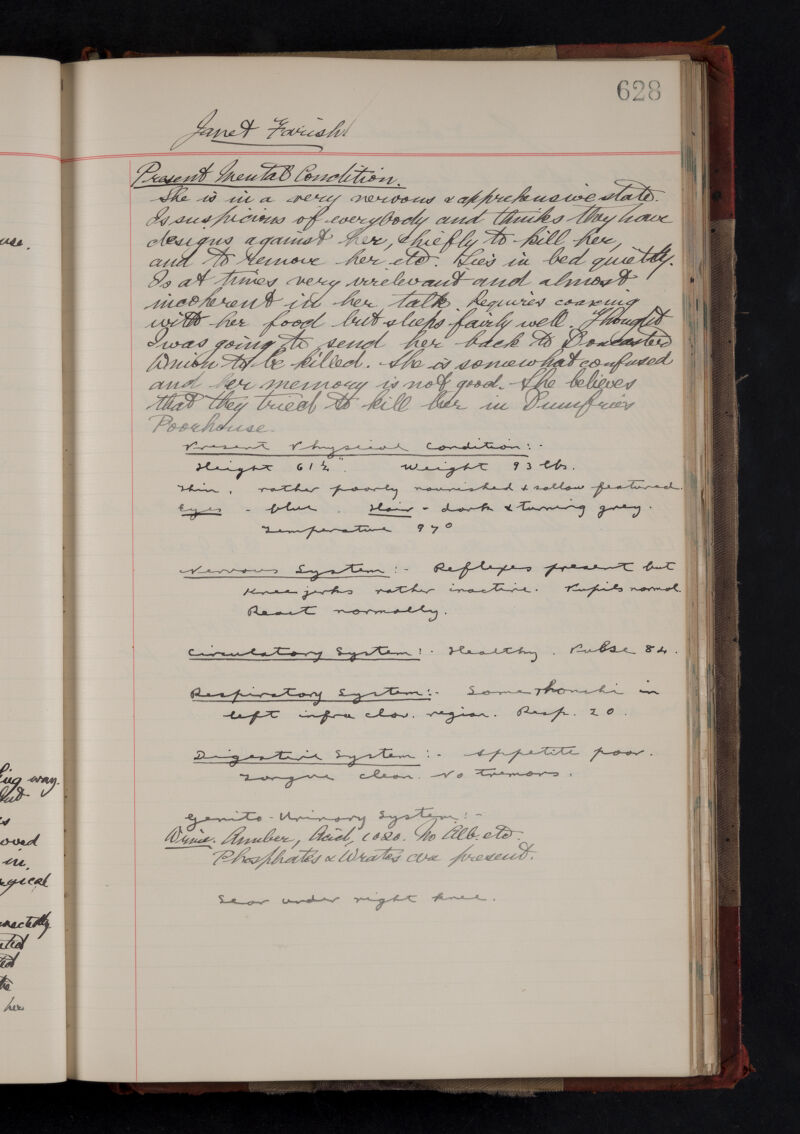 628
Janet Farish
Present Mental Condition.
She is in a very nervous & apprehensive state.
Is suspicious of everybody and thinks they have
designs against her, chiefly to kill her,
and to remove her etc. Lies in bed quietly.
Is at times very irrelevant and almost
incoherent in her talk. Requires coaxing
with her food but sleeps fairly well. Thought
I was going to send her back to Doncaster
Union to be killed. She is somewhat confused
and her memory is not good. She believes
that they tried to kill her in Dumfries
Poorhouse.
Present Physical Condition:-
Height 61½". Weight 93 lbs.
Thin, rather poorly nourished & sallow featured.
Eyes - blue. Hair - dark & turning grey.
Temperature 97°
Nervous System:- Reflexes present but
Knee jerks rather inactive. Pupils normal.
React normally.
Circulatory System:- Healthy. Pulse 84.
Respiratory System:- Some rhonchi in
left infra clav. region. Resp. 20.
Digestive System:- Appetite poor.
Tongue clean. No tremors.
Genito-Urinary System:-
Urine. Amber, Acid, 1020. No Alb. etc.
Phosphates & Urates are present.
Scar under right knee.